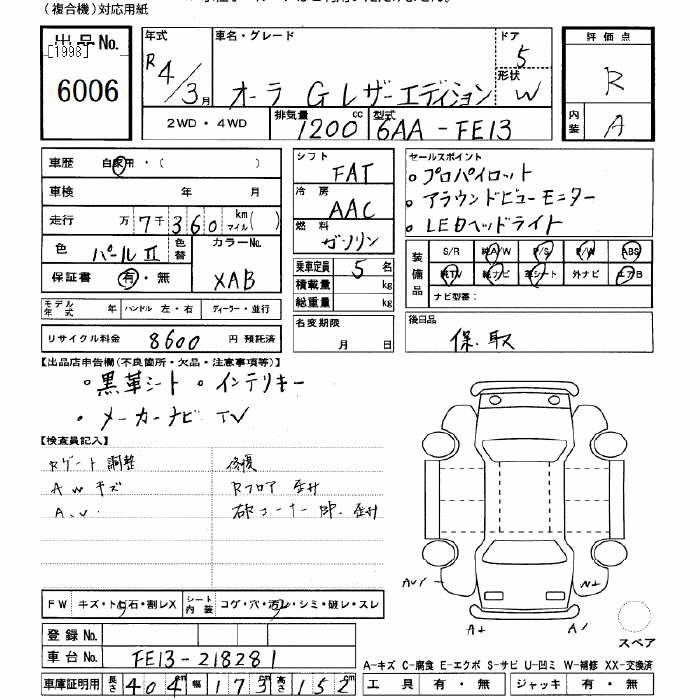 （複合機）対応用紙
出品No.
[1998]
6006
年式
R4/3月
車名・グレード
オーラ G レザーエディション
ドア
5
形状
W
2WD・4WD
排気量
1200cc
型式
6AA-FE13
評価点
R
内装
A
車歴 自家用・（ ）
車検 年 月
走行 万7千360km マイル( )
色 パールⅡ 色替 カラーNo. XAB
保証書 有・無
モデル年式 年 ハンドル 左・右 ディーラー・並行
リサイクル料金 8600 円 預託済
シフト FAT
冷房 AAC
燃料 ガソリン
乗車定員 5名
積載量 kg
総重量 kg
名変期限
月 日
セールスポイント
。プロパイロット
。アラウンドビューモニター
。LEDヘッドライト
装備品
S/R 純A/W P/S P/W ABS
純TV 純ナビ 革シート 外ナビ エアB
ナビ型番：
後日品
保.取
【出品店申告欄(不良箇所・欠品・注意事項等)】
。黒革シート 。インテリキー
。メーカーナビ TV
【検査員記入】
Rゲート調整 修復
AWキズ Rフロア
A.U. コーナー
FW キズ・トビ石・割レX シート内装 コゲ・穴・汚レ・シミ・破レ・スレ
登録No.
車台No. FE13-218281
車庫証明用 長さ 404cm 幅 173cm 高さ 152cm
A
A
スペア
A-キズ C-腐食 E-エクボ S-サビ U-凹ミ W-補修 XX-交換済
工具 有・無 ジャッキ 有・無